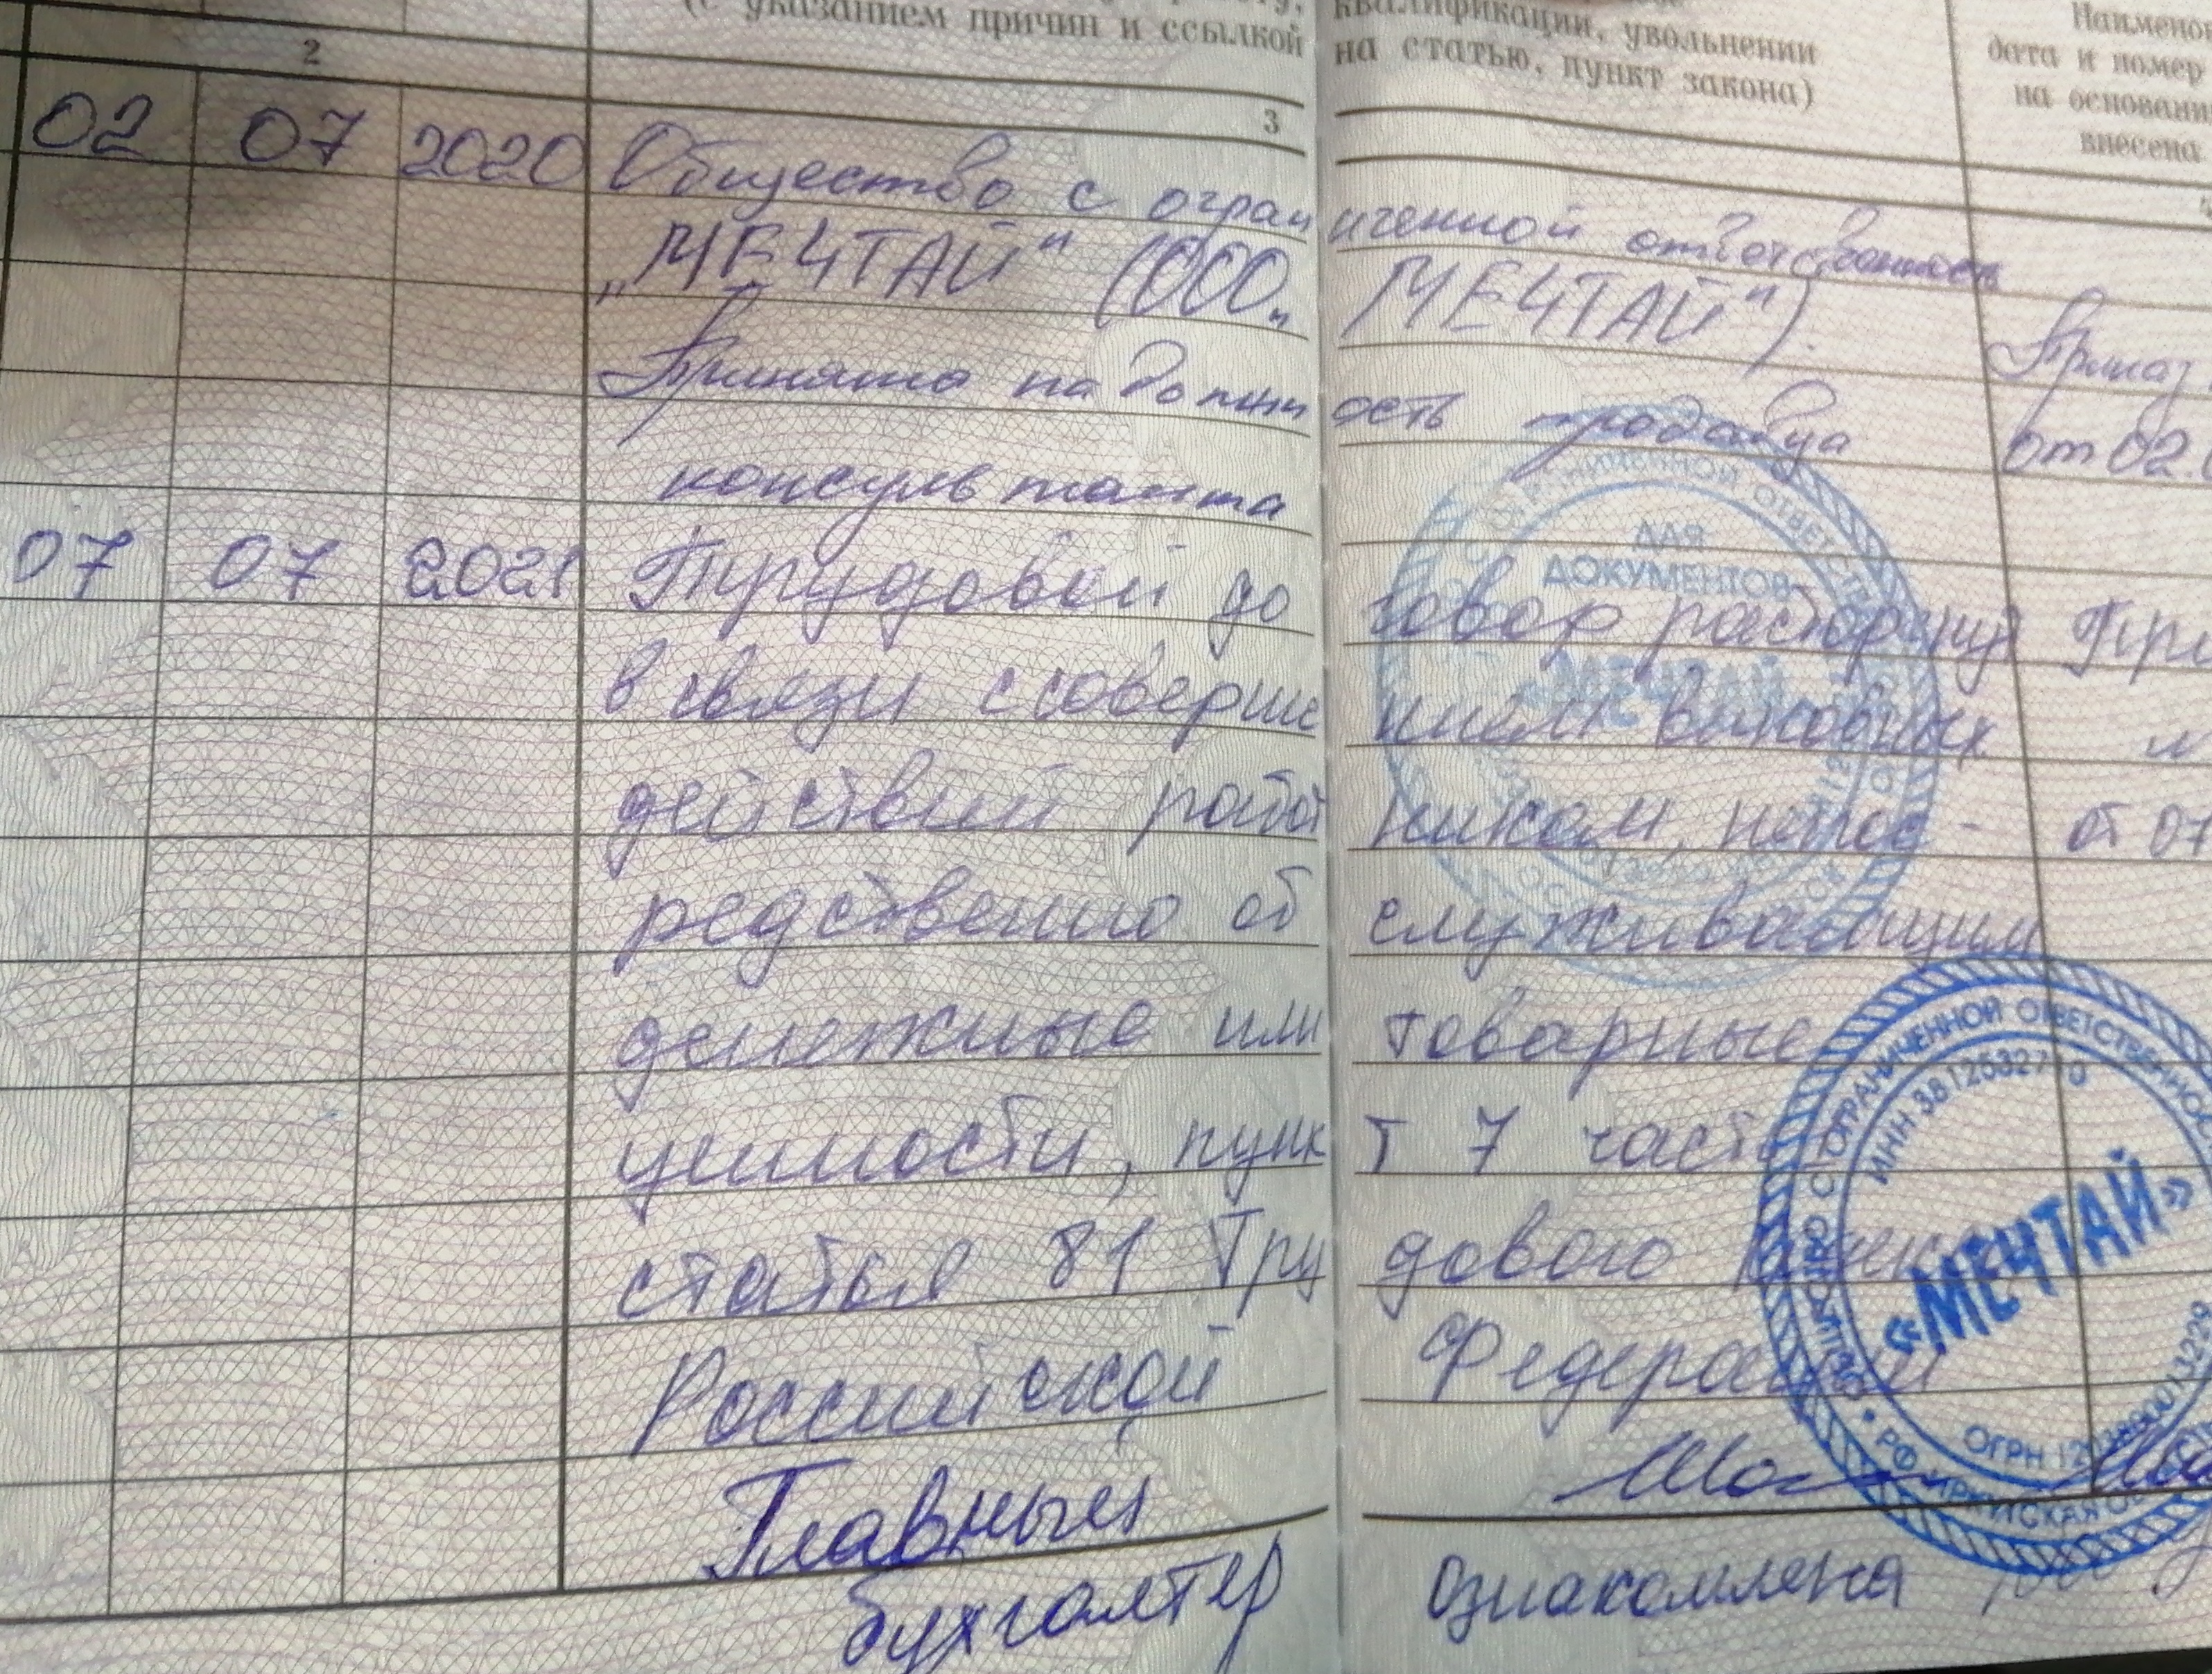 указанием причин и ссылкой квалификации, увольнении
на статью, пункт закона)
дата и номер
на основани
внесена
2
3
02 07 2020 Общество с ограниченной ответственность
„МЕЧТАЙ" (ООО „МЕЧТАЙ").
Принята на должность продавца
от 02.
консультанта
07 07 2021 Трудовой договор расторгнут
в связи с совершением виновных
действий работником, непос- от 07
редственно обслуживающим
денежные или товарные
ценности, пункт 7 част
статьи 81 Трудового
Российской Федерации
Главный
бухгалтер ознакомлена
ДЛЯ
ДОКУМЕНТОВ
ОБЩЕСТВО С ОГРАНИЧЕННОЙ ОТВЕТСТВЕННОС
ИНН 38125327
«МЕЧТАЙ»
ОГРН
РФ ИРКУТСКАЯ